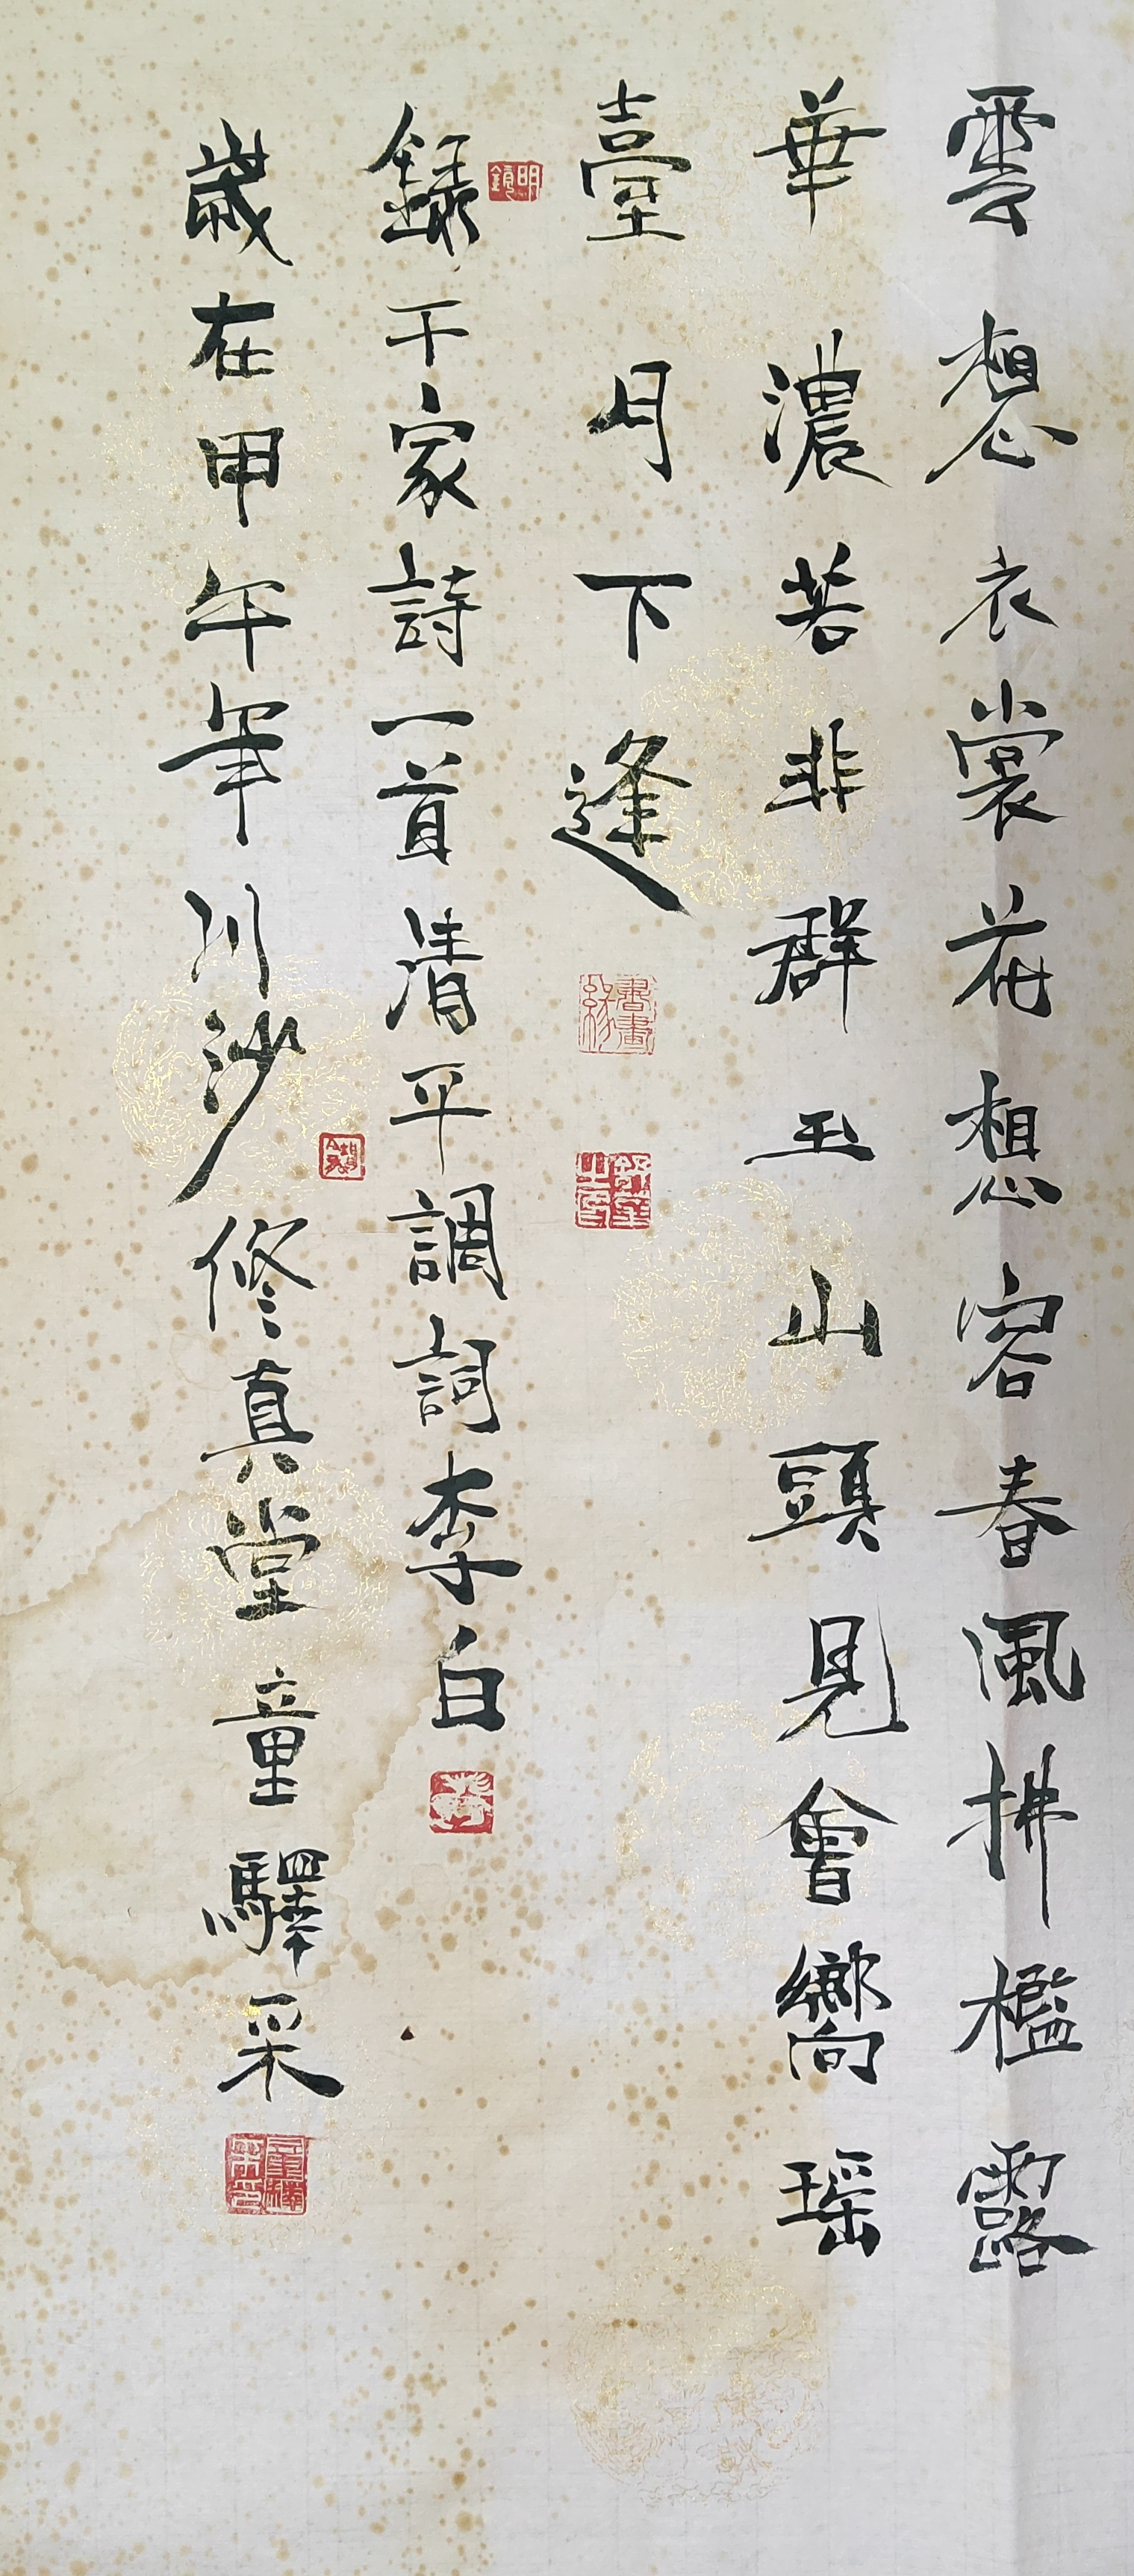 雲想衣裳花想容春風拂檻露
華濃若非群玉山頭見會嚮瑶
臺月下逢
書畫緣
明鏡
録千家詩一首清平調詞李白
歲在甲午年川沙修真堂童驛采